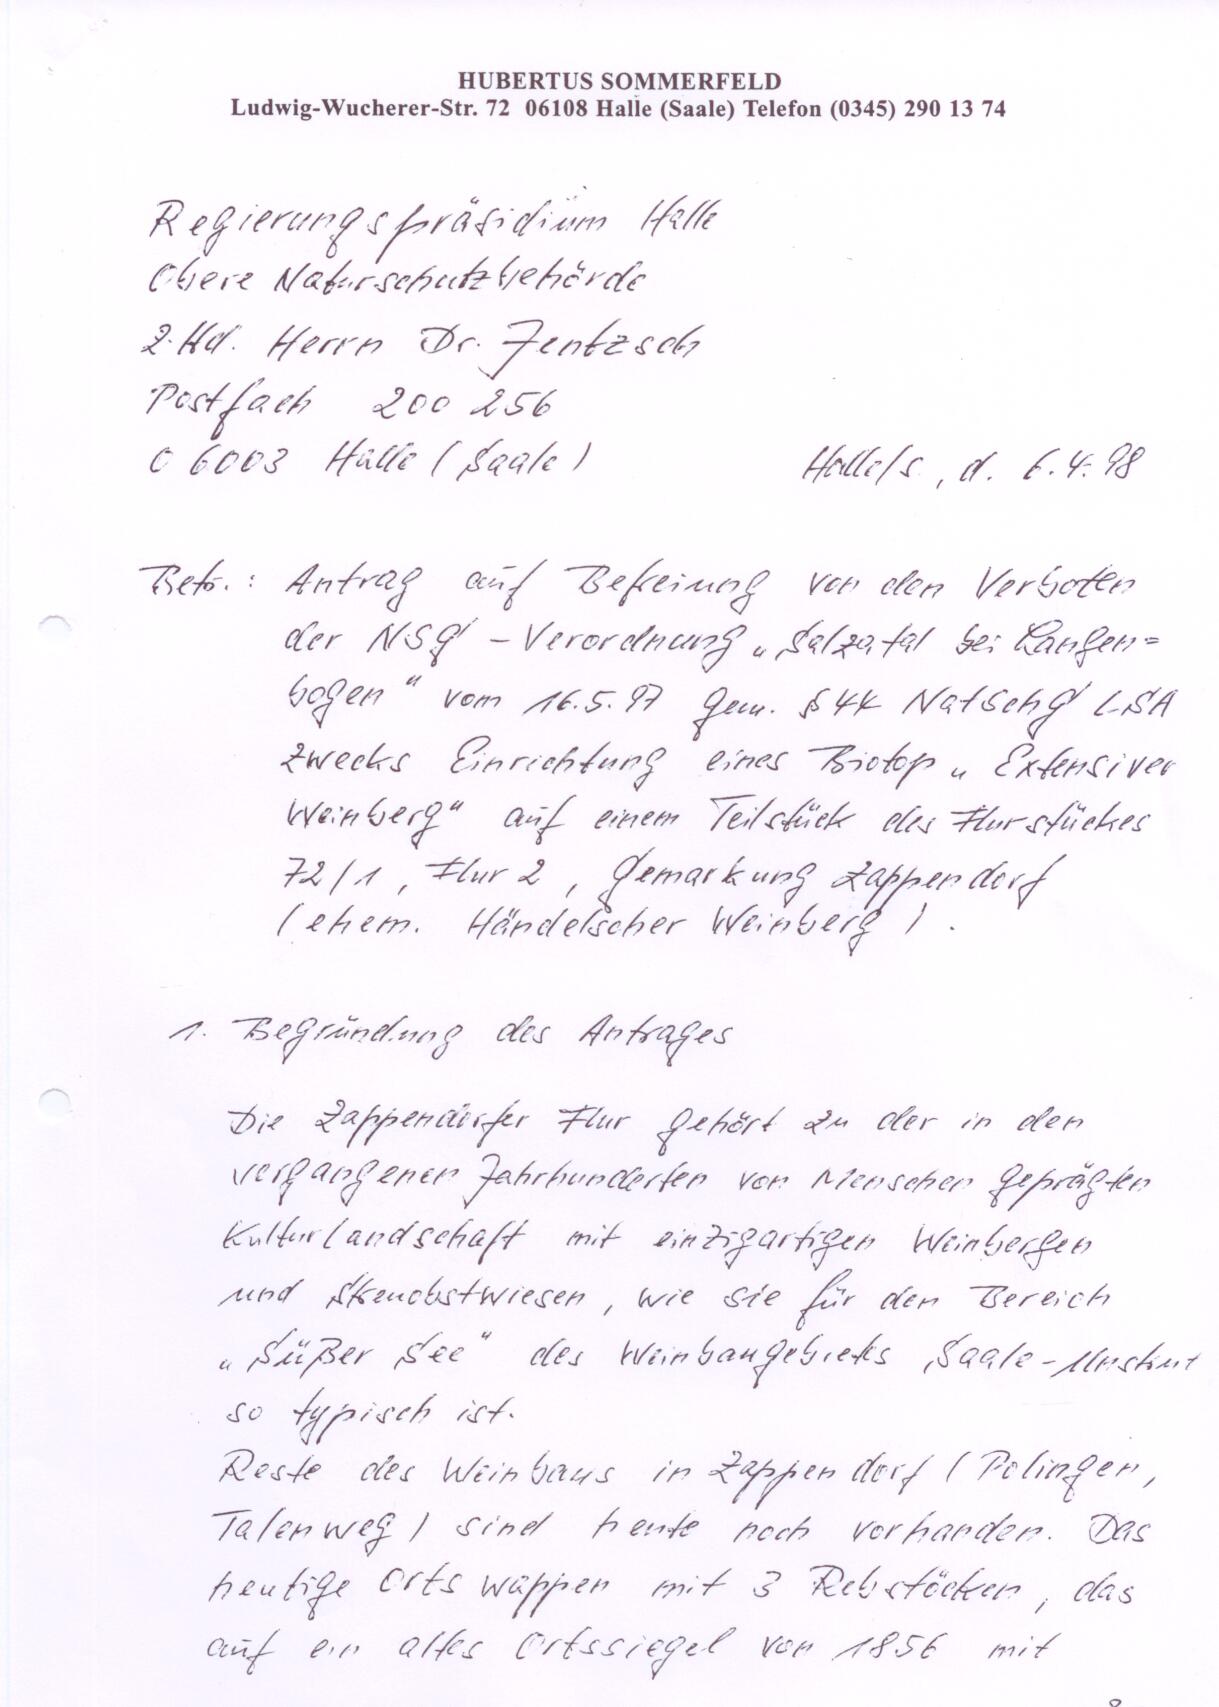 HUBERTUS SOMMERFELD
Ludwig-Wucherer-Str. 72 06108 Halle (Saale) Telefon (0345) 290 13 74
Regierungspräsidium Halle
Obere Naturschutzbehörde
z.Hd. Herrn Dr. Jentzsch
Postfach 200 256
06003 Halle (Saale)
Halle/S., d. 6.4.98
Betr.: Antrag auf Befreiung von den Verboten
der NSG-Verordnung „Salzatal bei Langen=
bogen“ vom 16.5.97 gem. §44 NatSchG LSA
zwecks Einrichtung eines Biotop „Extensiver
Weinberg“ auf einem Teilstück des Flurstückes
72/1, Flur 2, Gemarkung Zappendorf
(ehem. Händelscher Weinberg).
1. Begründung des Antrages
Die Zappendorfer Flur gehört zu der in den
vergangenen Jahrhunderten von Menschen geprägten
Kulturlandschaft mit einzigartigen Weinbergen
und Streuobstwiesen, wie sie für den Bereich
„Süßer See“ des Weinbaugebiets Saale-Unstrut
so typisch ist.
Reste des Weinbaus in Zappendorf (Polingen,
Talenweg) sind heute noch vorhanden. Das
heutige Ortswappen mit 3 Rebstöcken, das
auf ein altes Ortssiegel von 1856 mit